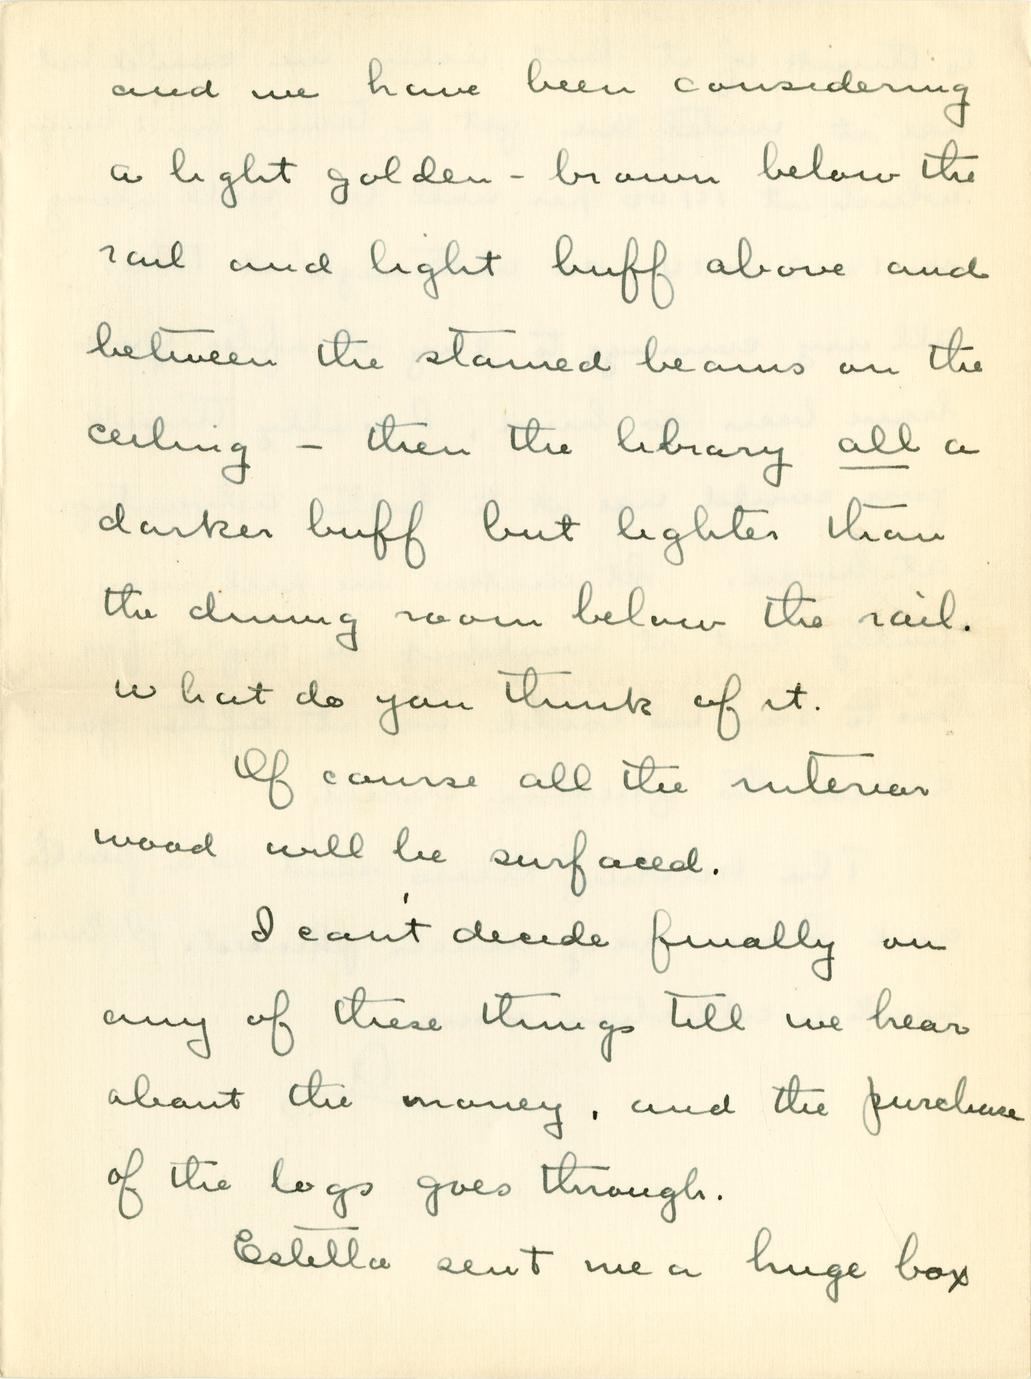 and we have been considering
a light golden - brown below the
rail and light buff above and
between the stained beams on the
ceiling - then the library all a
darker buff but lighter than
the dining room below the rail.
What do you think of it.
Of course all the interior
wood will be surfaced.
I can't decide finally on
any of these things till we hear
about the money, and the purchase
of the logs goes through.
Estella sent me a huge box